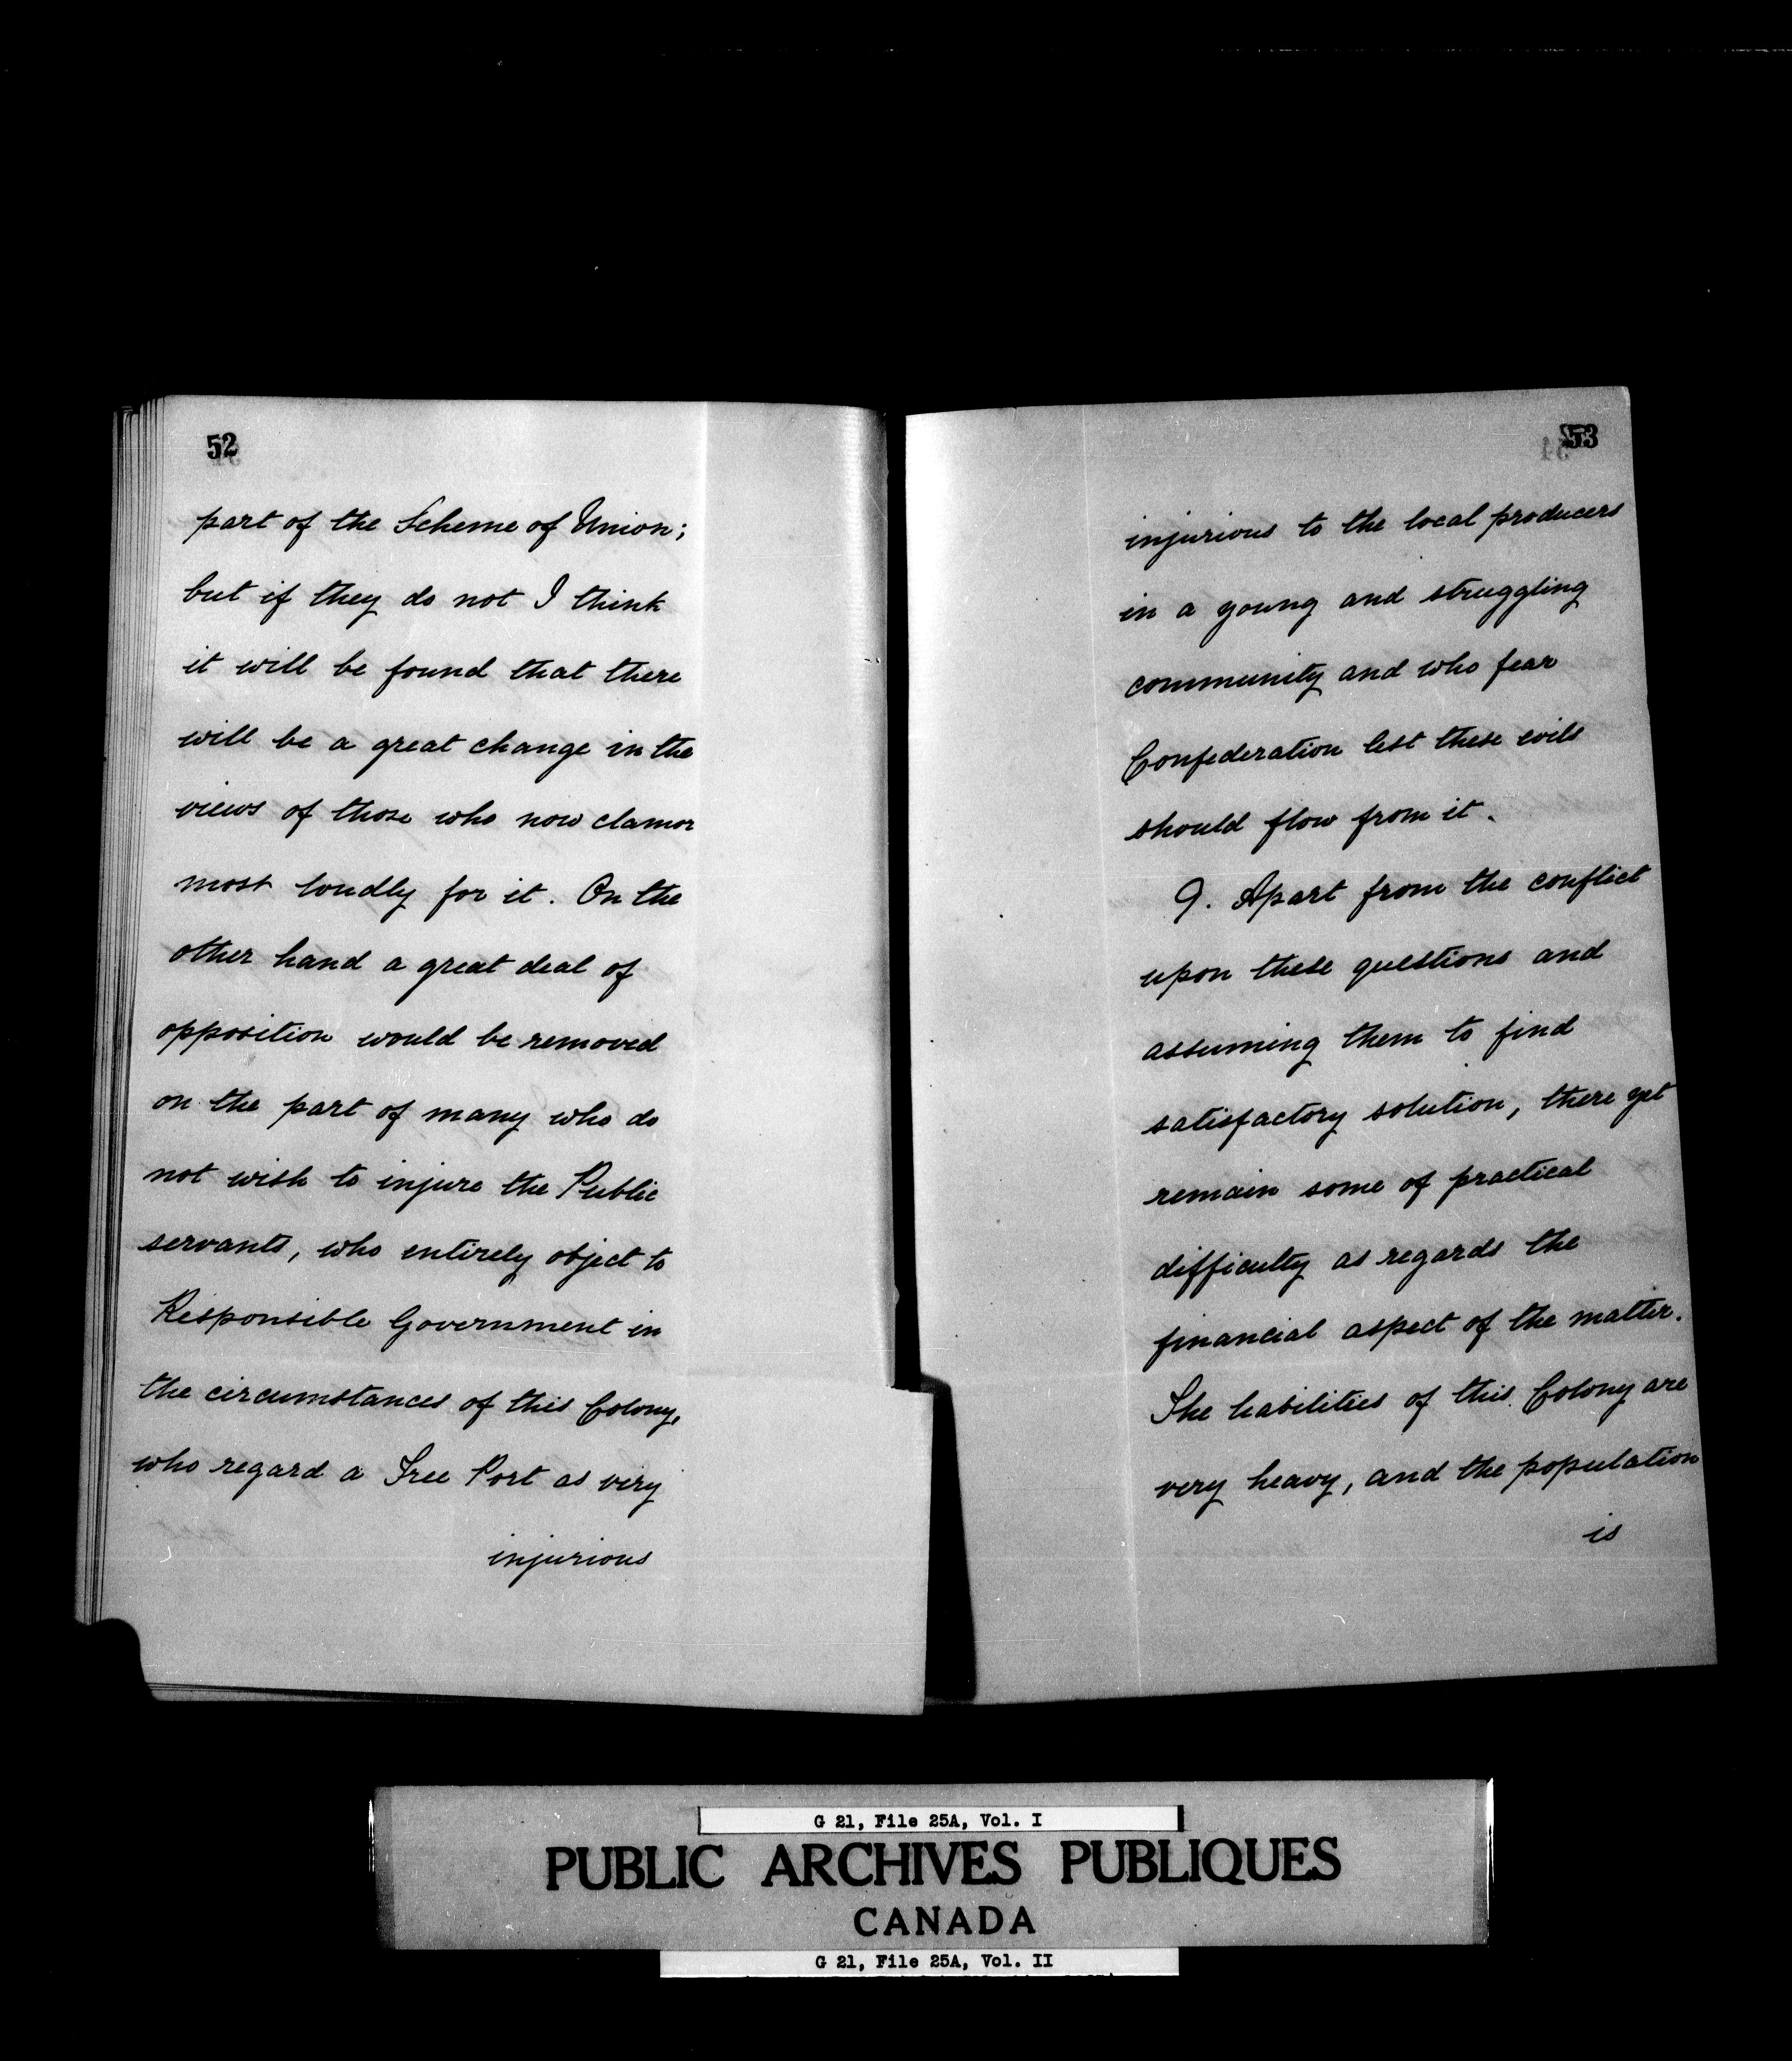 52
part of the Scheme of Union;
but if they do not I think
it will be found that there
will be a great change in the
views of those who now clamor
most loudly for it. On the
other hand a great deal of
opposition would be removed
on the part of many who do
not wish to injure the Public
servants, who entirely object to
Responsible Government in
the circumstances of this Colony,
who regard a Free Port as very
injurious
53
injurious to the local producers
in a young and struggling
community and who fear
Confederation lest these evils
should flow from it.
9. Apart from the conflict
upon these questions and
assuming them to find
satisfactory solution, there yet
remain some of practical
difficulty as regards the
financial aspect of the matter.
The liabilities of this Colony are
very heavy, and the population
is
G 21, File 25A, Vol. I
PUBLIC ARCHIVES PUBLIQUES
CANADA
G 21, File 25A, Vol. II